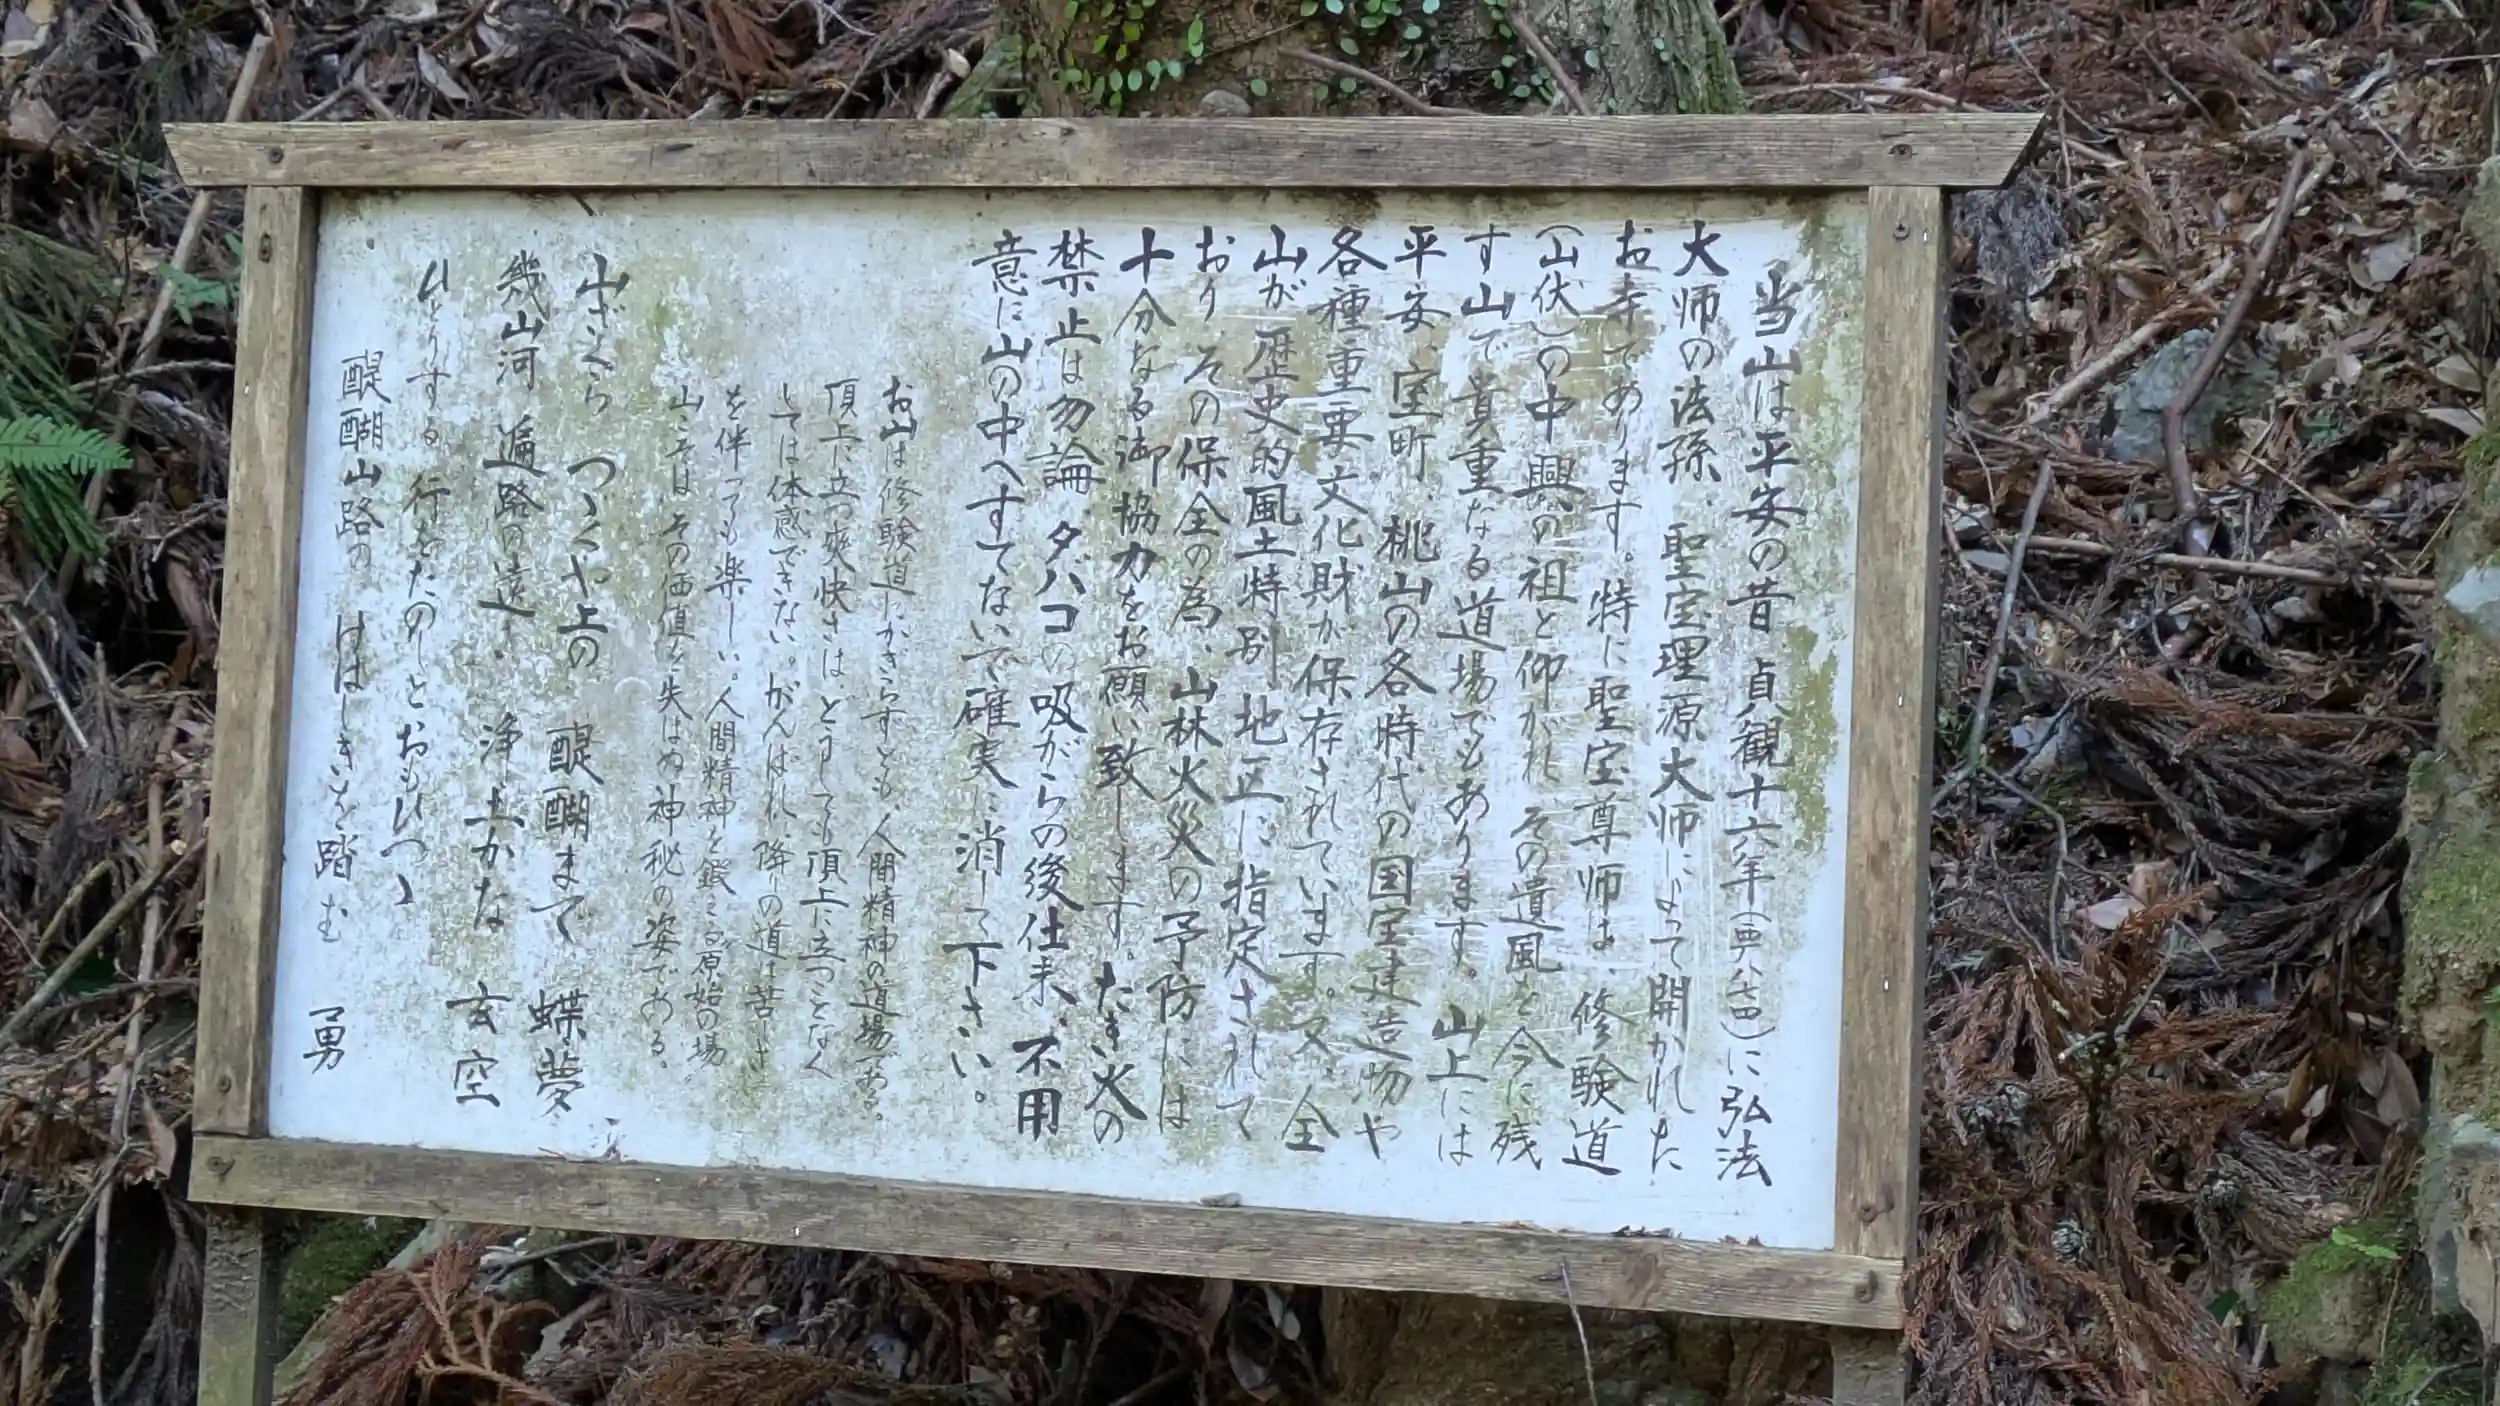 当山は平安の昔 貞観十六年(西暦八七四)に弘法
大師の法孫、聖宝理源大師によって開かれた
お寺であります。特に聖宝尊師は、修験道
(山伏)の中興の祖と仰がれ その遺風を今に残
す山で貴重なる道場でもあります。山上には
平安、室町、桃山の各時代の国宝建造物や
各種重要文化財が保存されています。又、全
山が歴史的風土特別地区に指定されて
おり、その保全の為、山林火災の予防には
十分なる御協力をお願い致します。たき火の
禁止は勿論、タバコの吸がらの後仕末、不用
意に山の中へすてないで確実に消して下さい。
お山は修験道にかぎらずとも、人間精神の道場である。
頂上に立つ爽快さは、どうしても頂上に立つことなく
しては体感できない。がんばれ、降りの道は苦しさ
を伴っても楽しい。人間精神を鍛える原始の場
山こそは その価値を失はぬ神秘の姿である。
山ざくら つゝくや上の 醍醐まで 蝶夢
幾山河 遍路の遠 浄土かな 玄空
ひとりする 行をたのしとおもひつゝ
醍醐山路の はしきいを踏む 勇